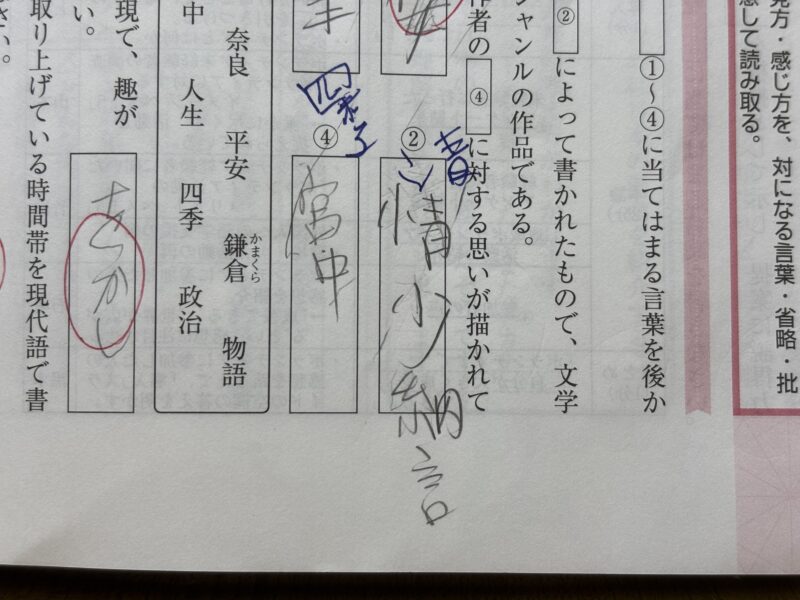 見方・感じ方を、対になる言葉・省略・批
意して読み取る。
①～④に当てはまる言葉を後か
②によって書かれたもので、文学
ジャンルの作品である。
作者の④に対する思いが描かれて
②
清
情少納言
四季
④
宮中
奈良 平安 鎌倉 物語
かまくら
中 人生 四季 政治
現で、趣が
をかし
い。
取り上げている時間帯を現代語で書
さい。